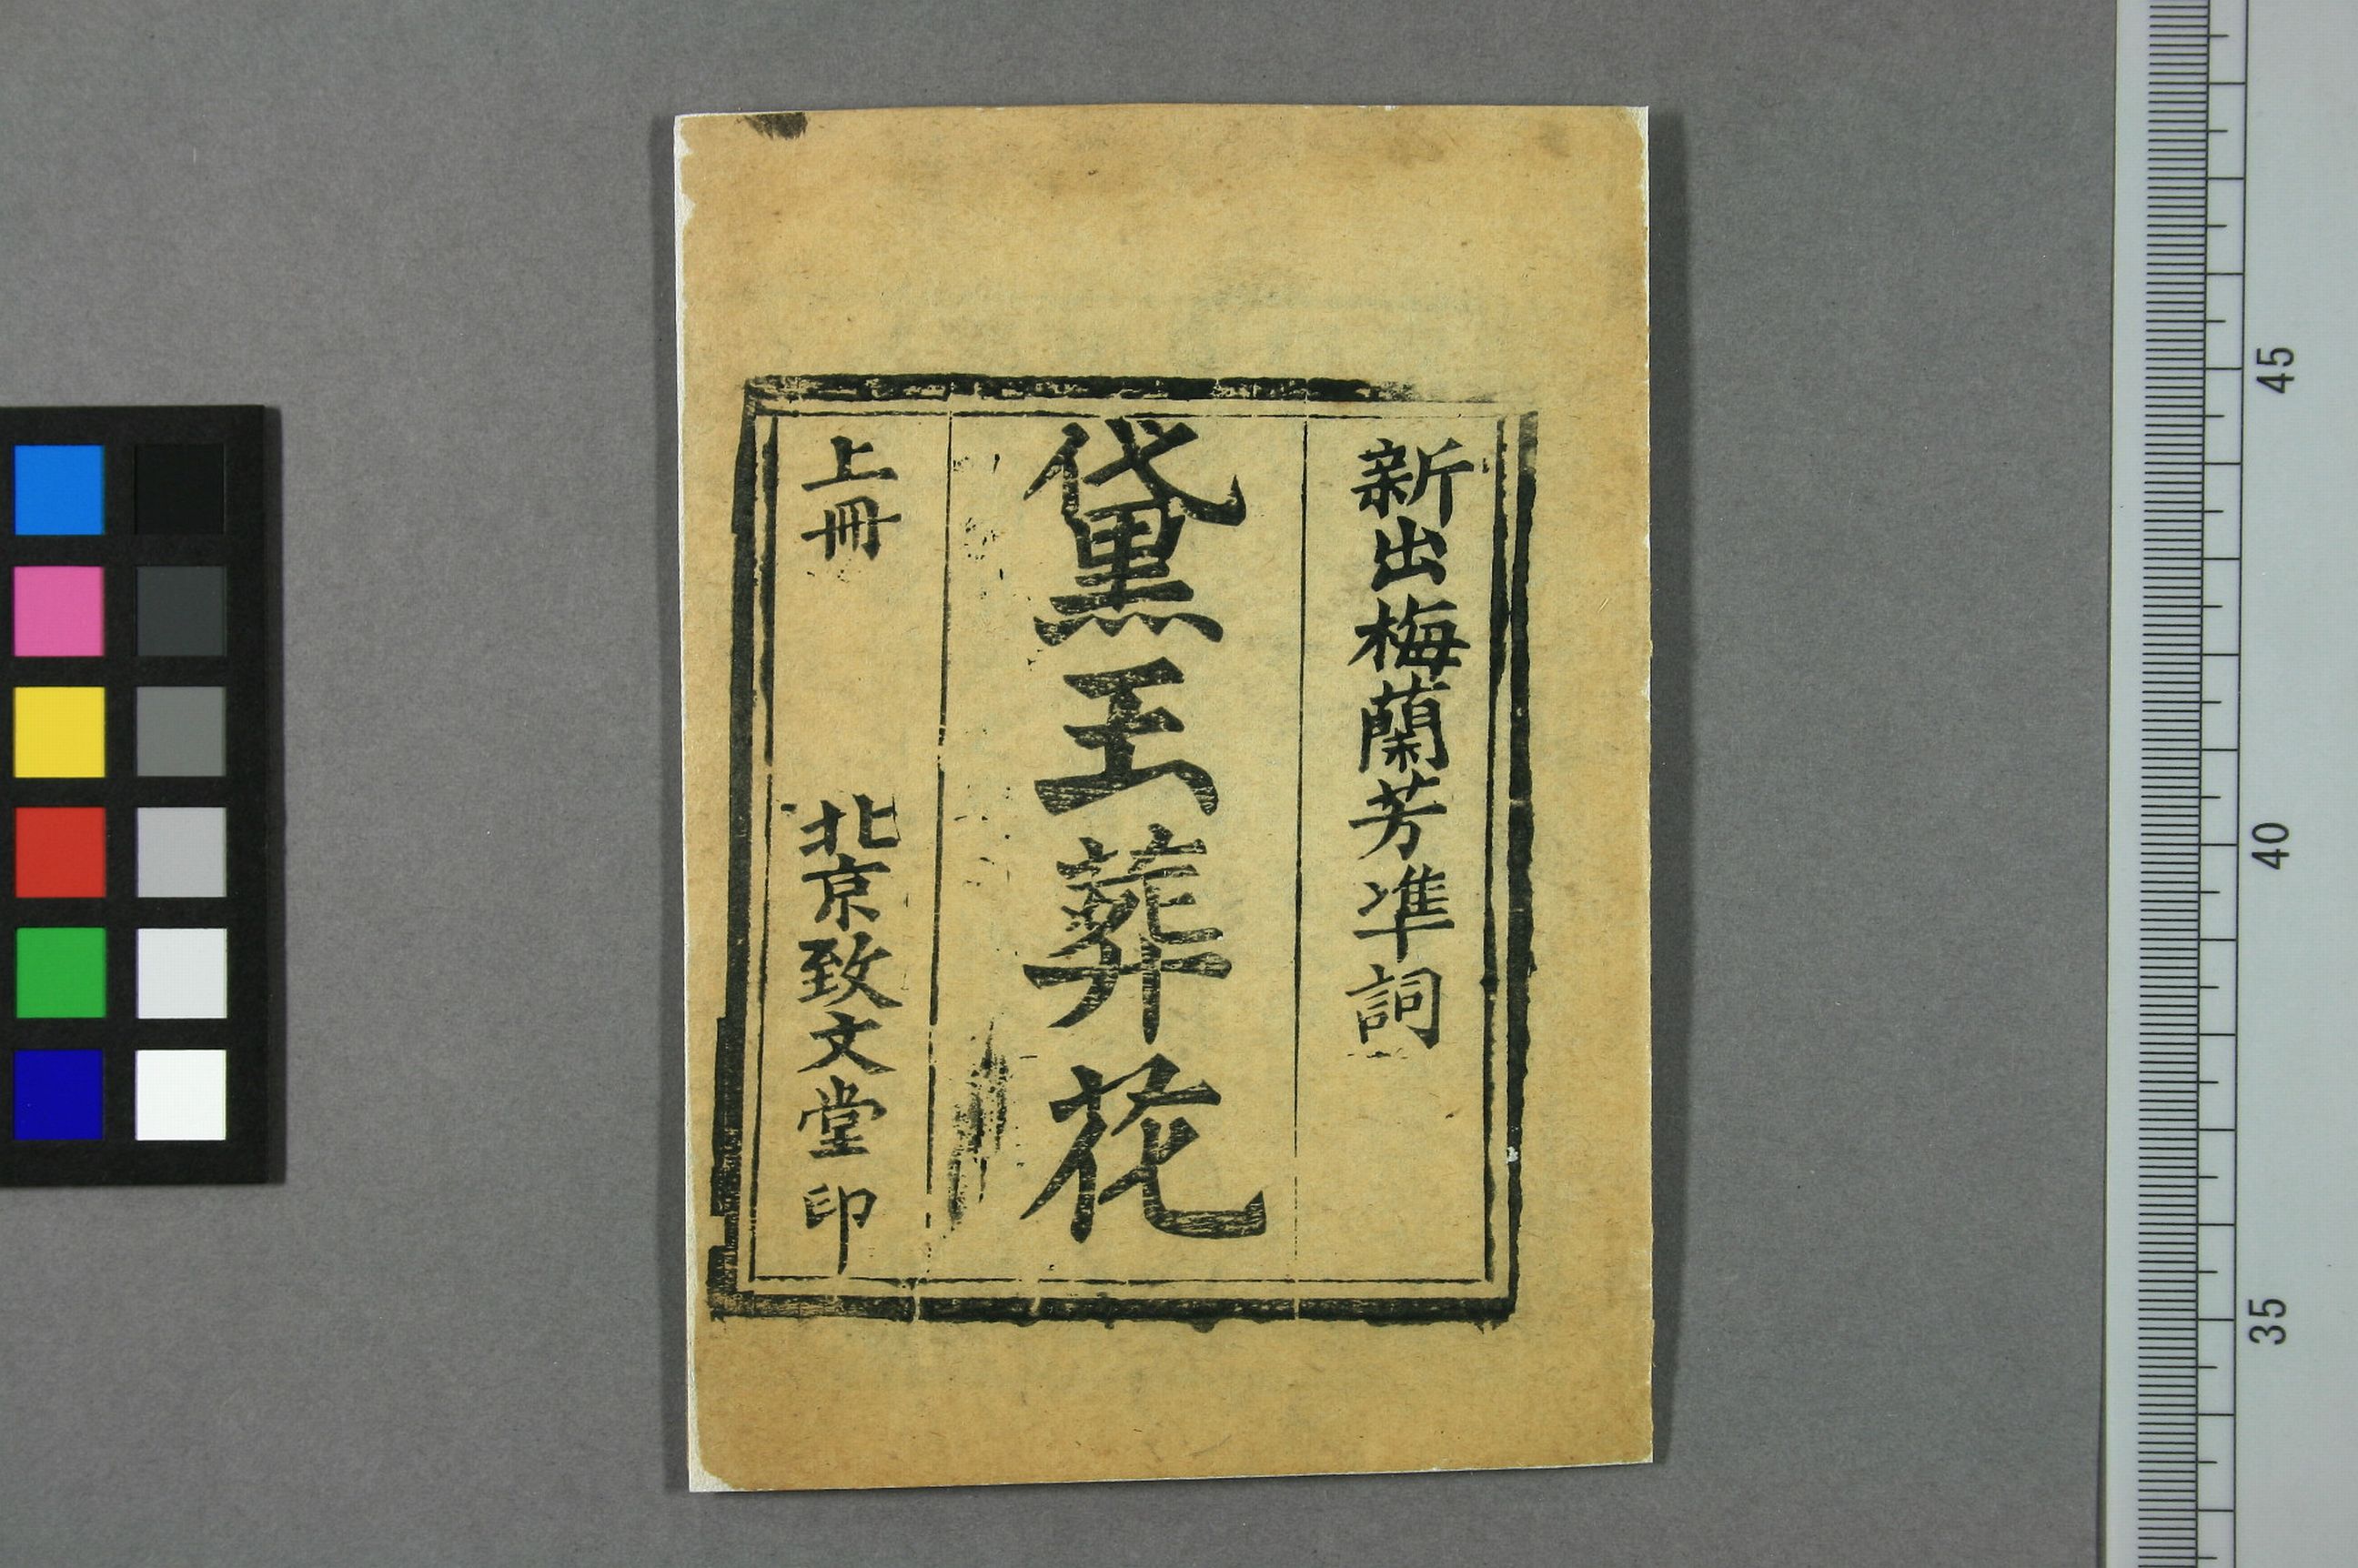 新出梅蘭芳準詞
黛玉葬花
上冊
北京致文堂印
45
40
35